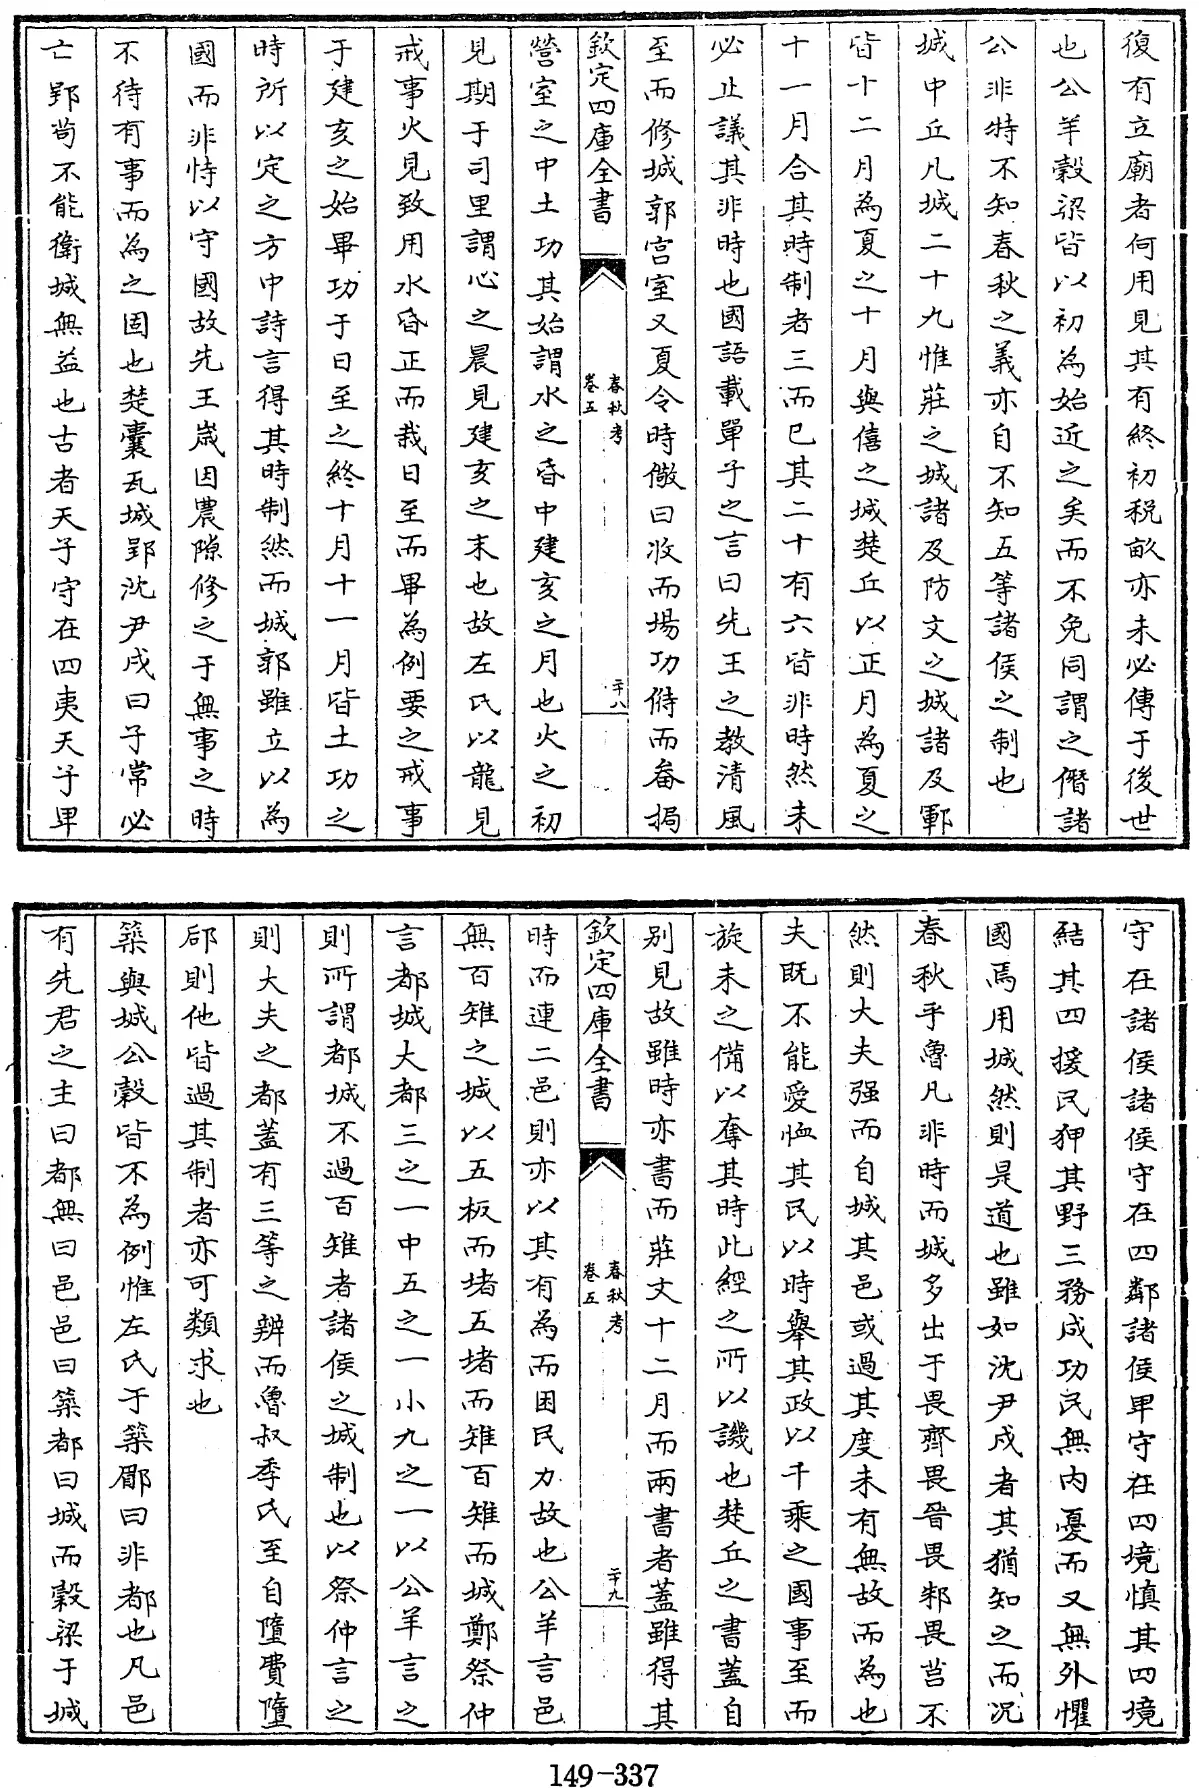 復有立廟者何用見其有終初税畝亦未必傳于後世
也公羊穀梁皆以初為始近之矣而不免同謂之僭諸
公非特不知春秋之義亦自不知五等諸侯之制也
城中丘凡城二十九惟莊之城諸及防文之城諸及鄆
皆十二月為夏之十月與僖之城楚丘以正月為夏之
十一月合其時制者三而已其二十有六皆非時然未
必止議其非時也國語載單子之言曰先王之教清風
至而修城郭宫室又夏令時儆曰收而場功偫而畚挶
欽定四庫全書
春秋考
卷五
二十八
營室之中土功其始謂水之昏中建亥之月也火之初
見期于司里謂心之晨見建亥之末也故左氏以龍見
戒事火見致用水昏正而栽日至而畢為例要之戒事
于建亥之始畢功于日至之終十月十一月皆土功之
時所以定之方中詩言得其時制然而城郭雖立以為
國而非恃以守國故先王嵗因農隙修之于無事之時
不待有事而為之固也楚囊瓦城郢沈尹戌曰子常必
亡郢茍不能衛城無益也古者天子守在四夷天子卑
守在諸侯諸侯守在四鄰諸侯卑守在四境慎其四境
結其四援民狎其野三務成功民無内憂而又無外懼
國焉用城然則是道也雖如沈尹戌者其猶知之而况
春秋乎魯凡非時而城多出于畏齊畏晉畏邾畏莒不
然則大夫强而自城其邑或過其度未有無故而為也
夫既不能愛恤其民以時舉其政以千乘之國事至而
旋未之備以奪其時此經之所以譏也楚丘之書蓋自
别見故雖時亦書而莊文十二月而兩書者蓋雖得其
欽定四庫全書
春秋考
卷五
二十九
時而連二邑則亦以其有為而困民力故也公羊言邑
無百雉之城以五板而堵五堵而雉百雉而城鄭祭仲
言都城大都三之一中五之一小九之一以公羊言之
則所謂都城不過百雉者諸侯之城制也以祭仲言之
則大夫之都蓋有三等之辨而魯叔季氏至自墮費墮
郈則他皆過其制者亦可類求也
築與城公穀皆不為例惟左氏于築郿曰非都也凡邑
有先君之主曰都無曰邑邑曰築都曰城而穀梁于城
149-337